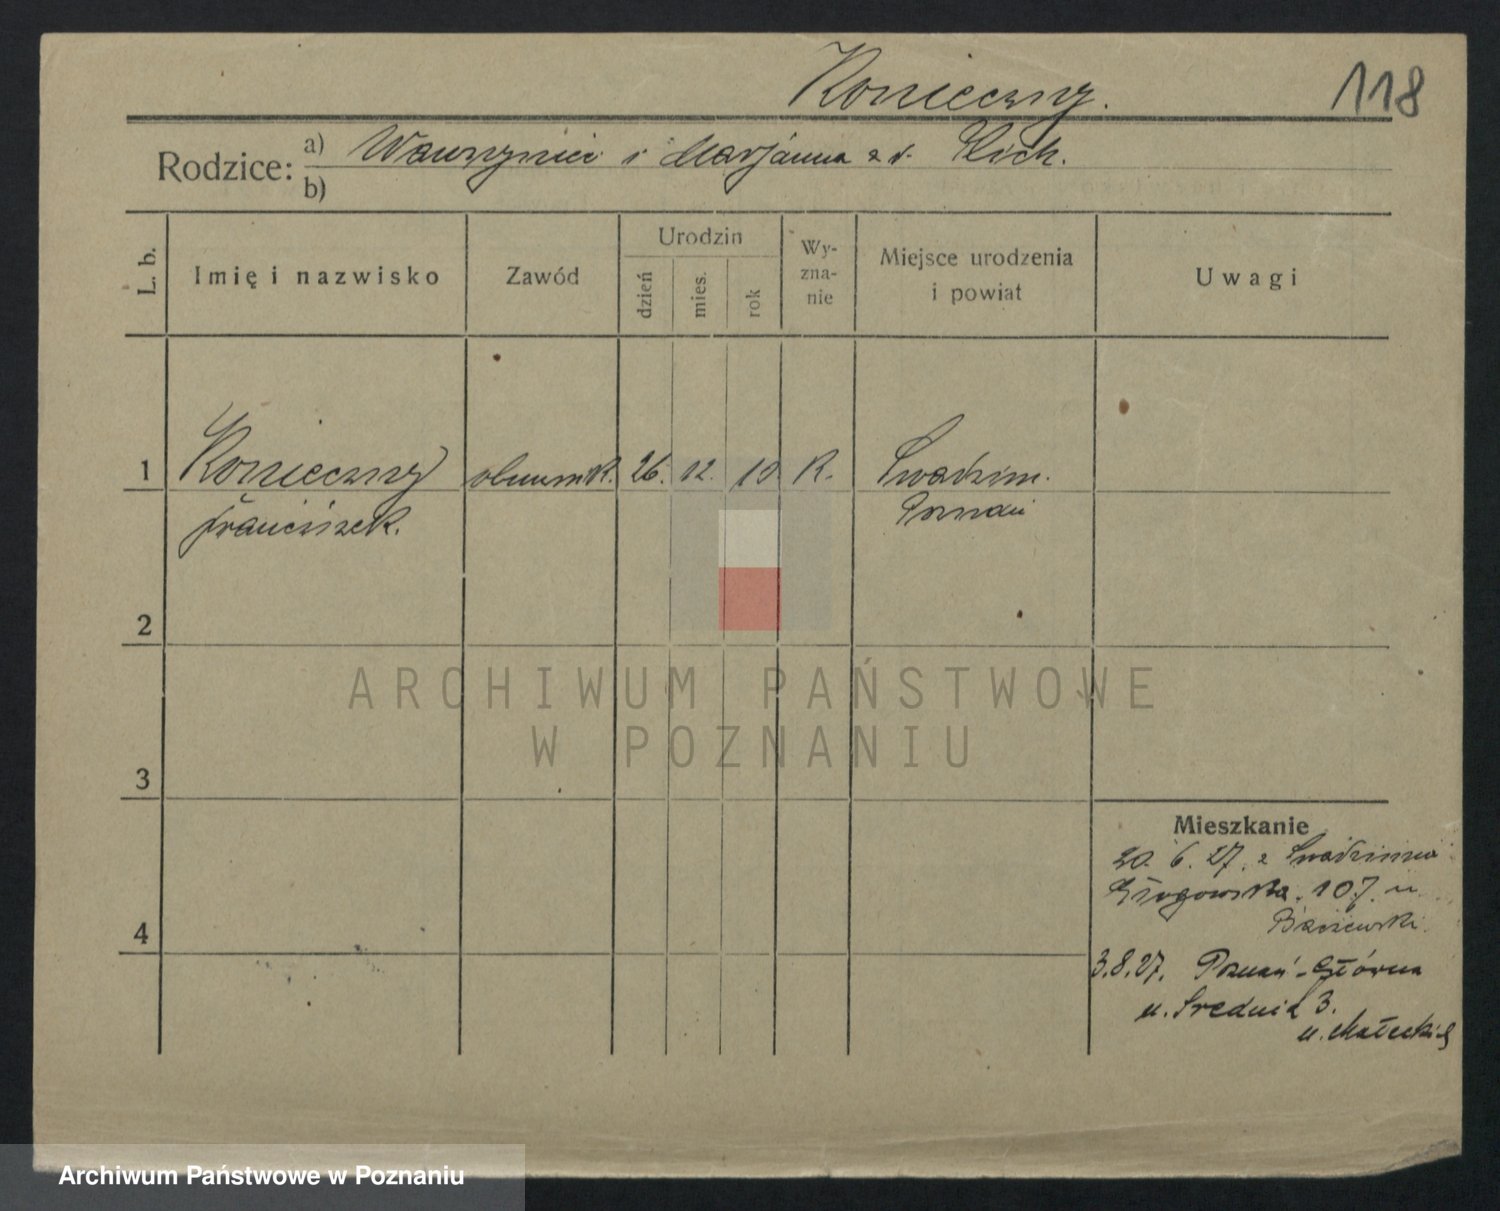 Konieczny.
118
Rodzice: a) Wawrzyniec i Marjanna z d. Klich.
b)
L. b.
Imię i nazwisko
Zawód
Urodzin
dzień
mies.
rok
Wy-
zna-
nie
Miejsce urodzenia
i powiat
Uwagi
1 Konieczny 26. 12. 10 K. Swadzim.
Franciszek. Poznań
2
3
4
ARCHIWUM PAŃSTWOWE
W POZNANIU
Mieszkanie
20. 6. 27. z Swadzimia
Głogowska. 107. u
3.8.27. Poznań-Główna
u. Średnia 3.
u. Małeckiej
Archiwum Państwowe w Poznaniu